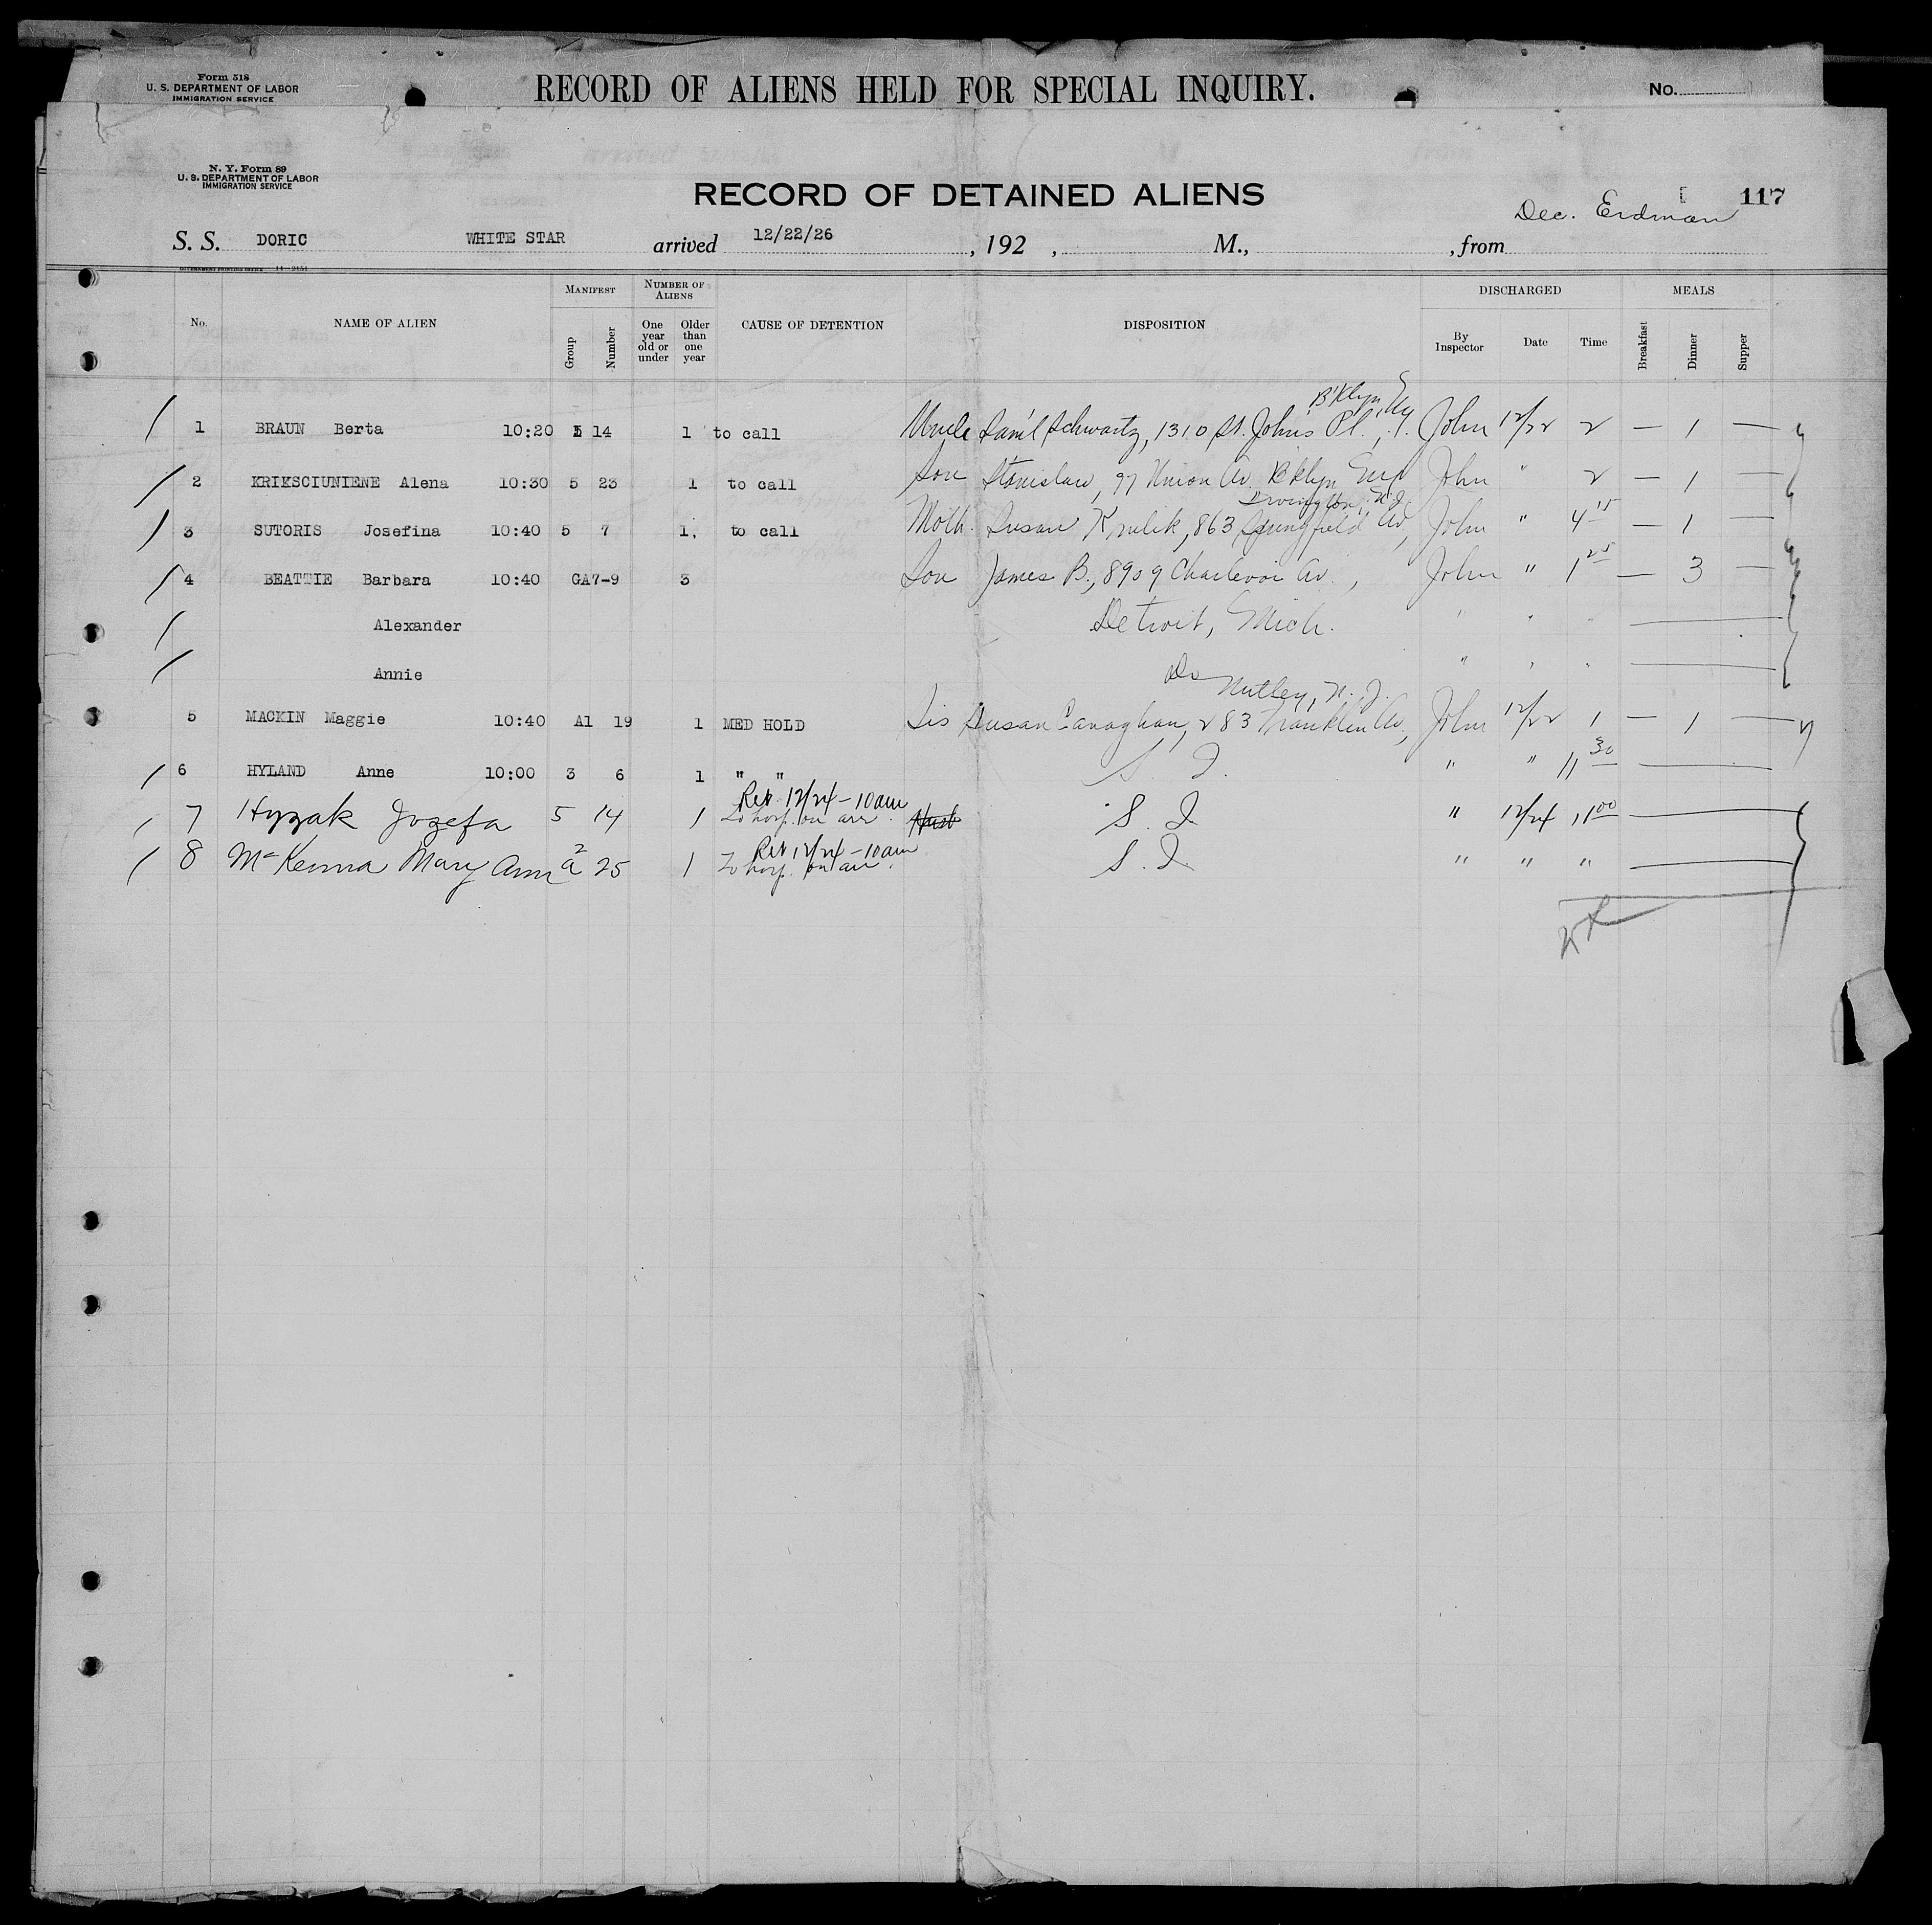 Form 518
U. S. DEPARTMENT OF LABOR
IMMIGRATION SERVICE
RECORD OF ALIENS HELD FOR SPECIAL INQUIRY.
No.
N. Y. Form 89
U. S. DEPARTMENT OF LABOR
IMMIGRATION SERVICE
RECORD OF DETAINED ALIENS
117
Dec. Erdman
S. S. DORIC WHITE STAR arrived 12/22/26, 192 , M., , from
GOVERNMENT PRINTING OFFICE
No. NAME OF ALIEN MANIFEST Group Number NUMBER OF ALIENS One year old or under Older than one year CAUSE OF DETENTION DISPOSITION DISCHARGED By Inspector Date Time MEALS Breakfast Dinner Supper
B'klyn, Ny
1 BRAUN Berta 10:20 14 1 to call Uncle Sam'l Schwartz, 1310 St. Johns Pl., John 12/22 2 — 1 —
2 KRIKSCIUNIENE Alena 10:30 5 23 1 to call Son Stanislaw, 97 Union Av. B'klyn John " 2 — 1 —
Irvington, N.J.
3 SUTORIS Josefina 10:40 5 7 1 to call Moth. Susan Krulik, 863 Springfield Av, John " 4 15 — 1 —
4 BEATTIE Barbara 10:40 GA7-9 3 Son James B., 8909 Charlevoix Av., John " 1 25 — 3 —
Alexander Detroit, Mich. " " " —
Annie Do " " " —
Nutley, N. J.
5 MACKIN Maggie 10:40 A1 19 1 MED HOLD Sis Susan Canaghan, 283 Franklin Av., John 12/22 1 — 1 —
6 HYLAND Anne 10:00 3 6 1 " " S. I. " " 11 30 —
Ret. 12/24 – 10 am
7 Hyzak Jozefa 5 14 1 To hosp. on arr. S. I. " 12/24 11 00 —
Ret 12/24 – 10 am
8 McKenna Mary Ann a2 25 1 To hosp. on arr. S. I. " " " —